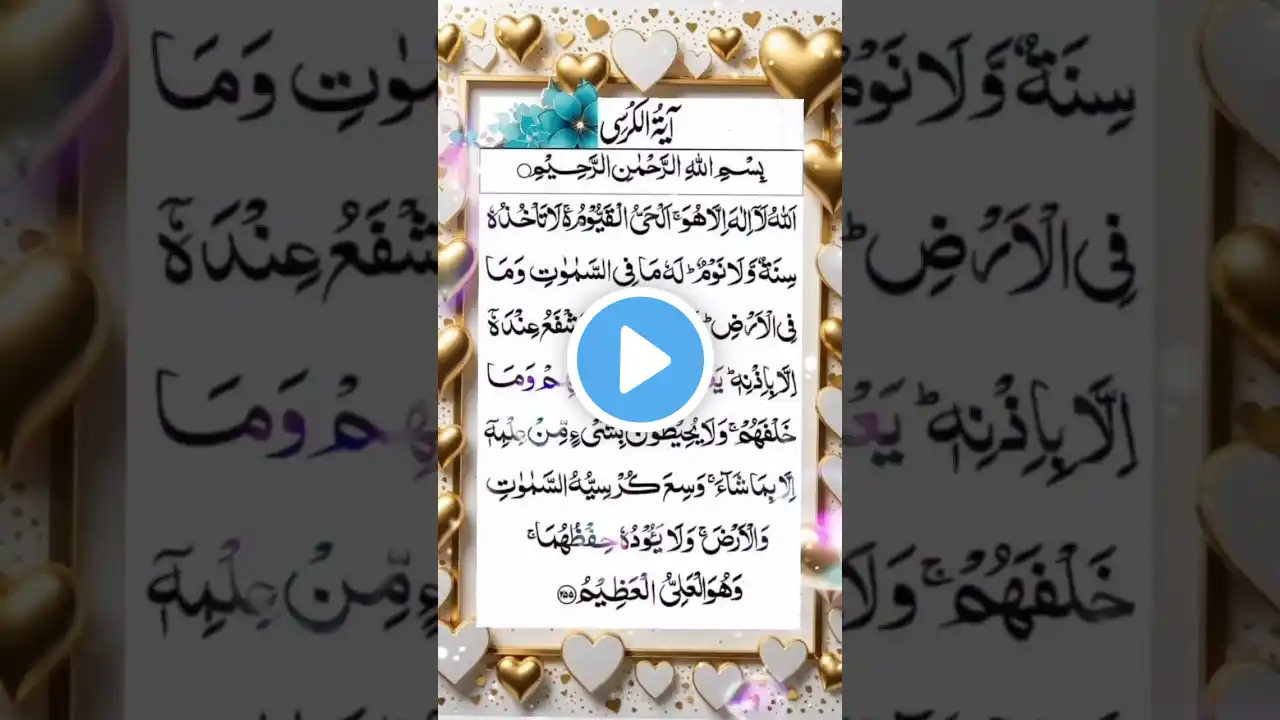 آيَةُ الكُرسِى
بِسْمِ اللهِ الرَّحْمٰنِ الرَّحِيْمِ
اَللهُ لَآ اِلٰهَ اِلَّا هُوَ ۚ اَلْحَيُّ الْقَيُّوْمُ ۚ لَا تَأْخُذُهٗ
سِنَةٌ وَّلَا نَوْمٌ ؕ لَهٗ مَا فِي السَّمٰوٰتِ وَمَا
فِي الْاَرْضِ ؕ يَشْفَعُ عِنْدَهٗٓ
اِلَّا بِاِذْنِهٖ ؕ وَمَا
خَلْفَهُمْ ۚ وَلَا يُحِيْطُوْنَ بِشَيْءٍ مِّنْ عِلْمِهٖٓ
اِلَّا بِمَا شَآءَ ۚ وَسِعَ كُرْسِيُّهُ السَّمٰوٰتِ
وَالْاَرْضَ ۚ وَلَا يَـُٔوْدُهٗ حِفْظُهُمَا ۚ
وَهُوَ الْعَلِيُّ الْعَظِيْمُ ﴿۲۵۵﴾